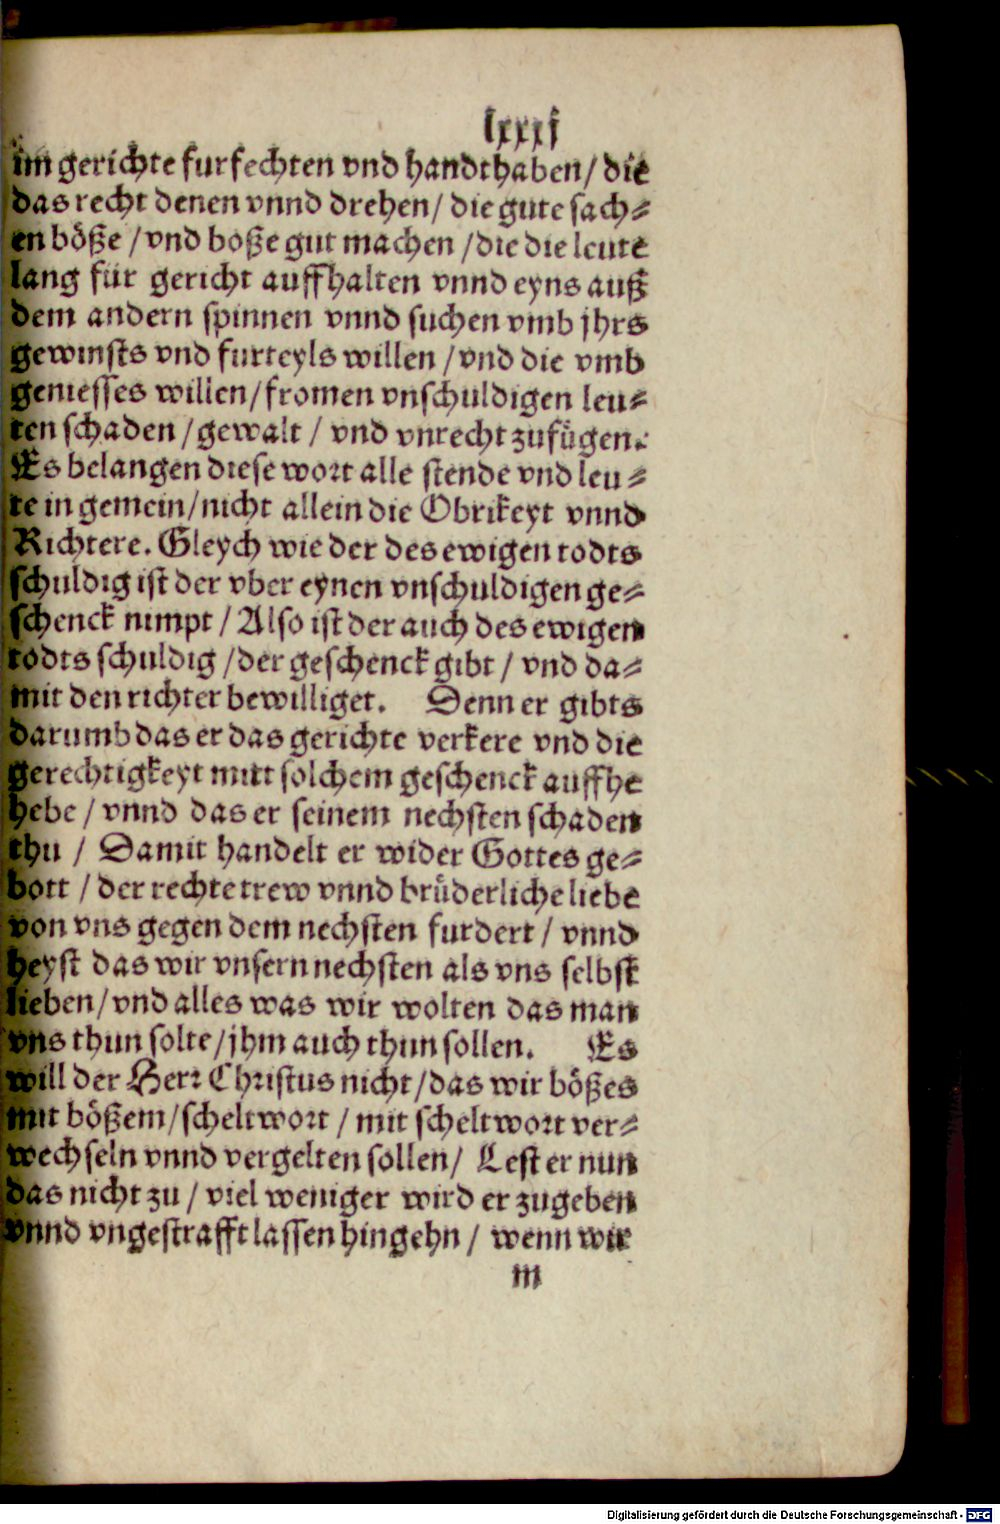 lxxxj
im gerichte furfechten vnd handthaben/ die
das recht denen vnnd drehen/ die gute sach⸗
en böße /vnd boße gut machen /die die leute
lang für gericht auffhalten vnnd eyns auß
dem andern spinnen vnnd suchen vmb jhrs
gewinsts vnd furteyls willen /vnd die vmb
geniesses willen/fromen vnschuldigen leu⸗
ten schaden /gewalt / vnd vnrecht zufügen.
Es belangen diese wort alle stende vnd leu⸗
te in gemein/nicht allein die Obrikeyt vnnd
Richtere. Gleych wie der des ewigen todts
schuldig ist der vber eynen vnschuldigen ge⸗
schenck nimpt / Also ist der auch des ewigen
todts schuldig /der geschenck gibt / vnd da⸗
mit den richter bewilliget. Denn er gibts
darumb das er das gerichte verkere vnd die
gerechtigkeyt mitt solchem geschenck auffhe
hebe / vnnd das er seinem nechsten schaden
thu / Damit handelt er wider Gottes ge⸗
bott / der rechte trew vnnd brüderliche liebe
von vns gegen dem nechsten furdert / vnnd
heyst das wir vnsern nechsten als vns selbst
lieben/ vnd alles was wir wolten das man
vns thun solte/jhm auch thun sollen. Es
will der Herr Christus nicht/das wir bößes
mit bößem/scheltwort / mit scheltwort ver⸗
wechseln vnnd vergelten sollen/ Lest er nun
das nicht zu / viel weniger wird er zugeben
vnnd vngestrafft lassen hingehn / wenn wir
m
Digitalisierung gefördert durch die Deutsche Forschungsgemeinschaft - DFG